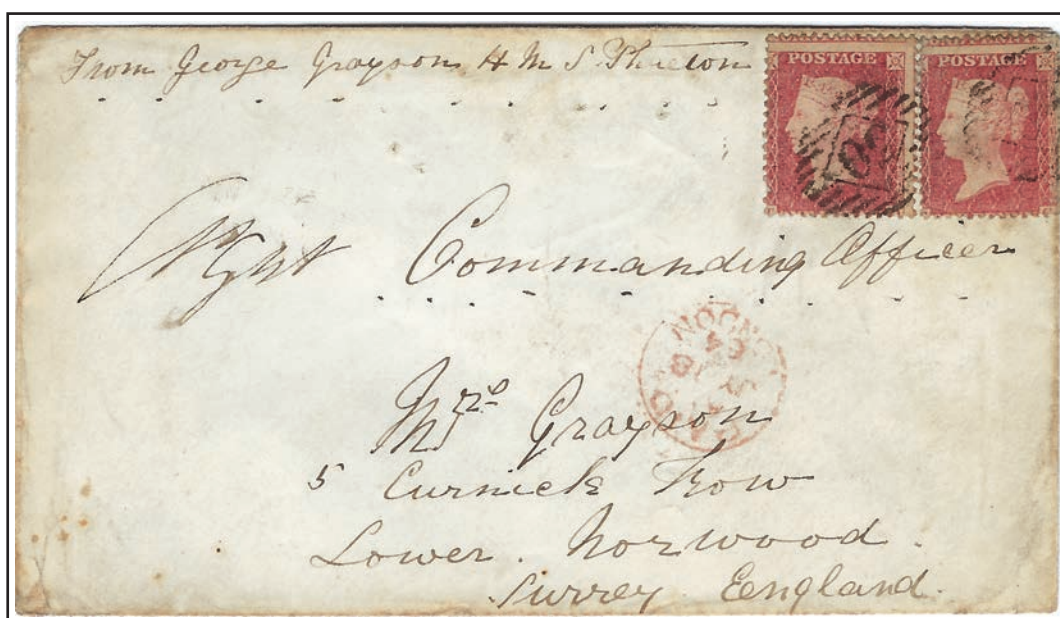 From George Grayson H M S. Phaeton
POSTAGE POSTAGE
Commanding Officer
LONDON
Mrs Grayson
5 Curnick Row
Lower. Norwood.
Surrey Eengland.